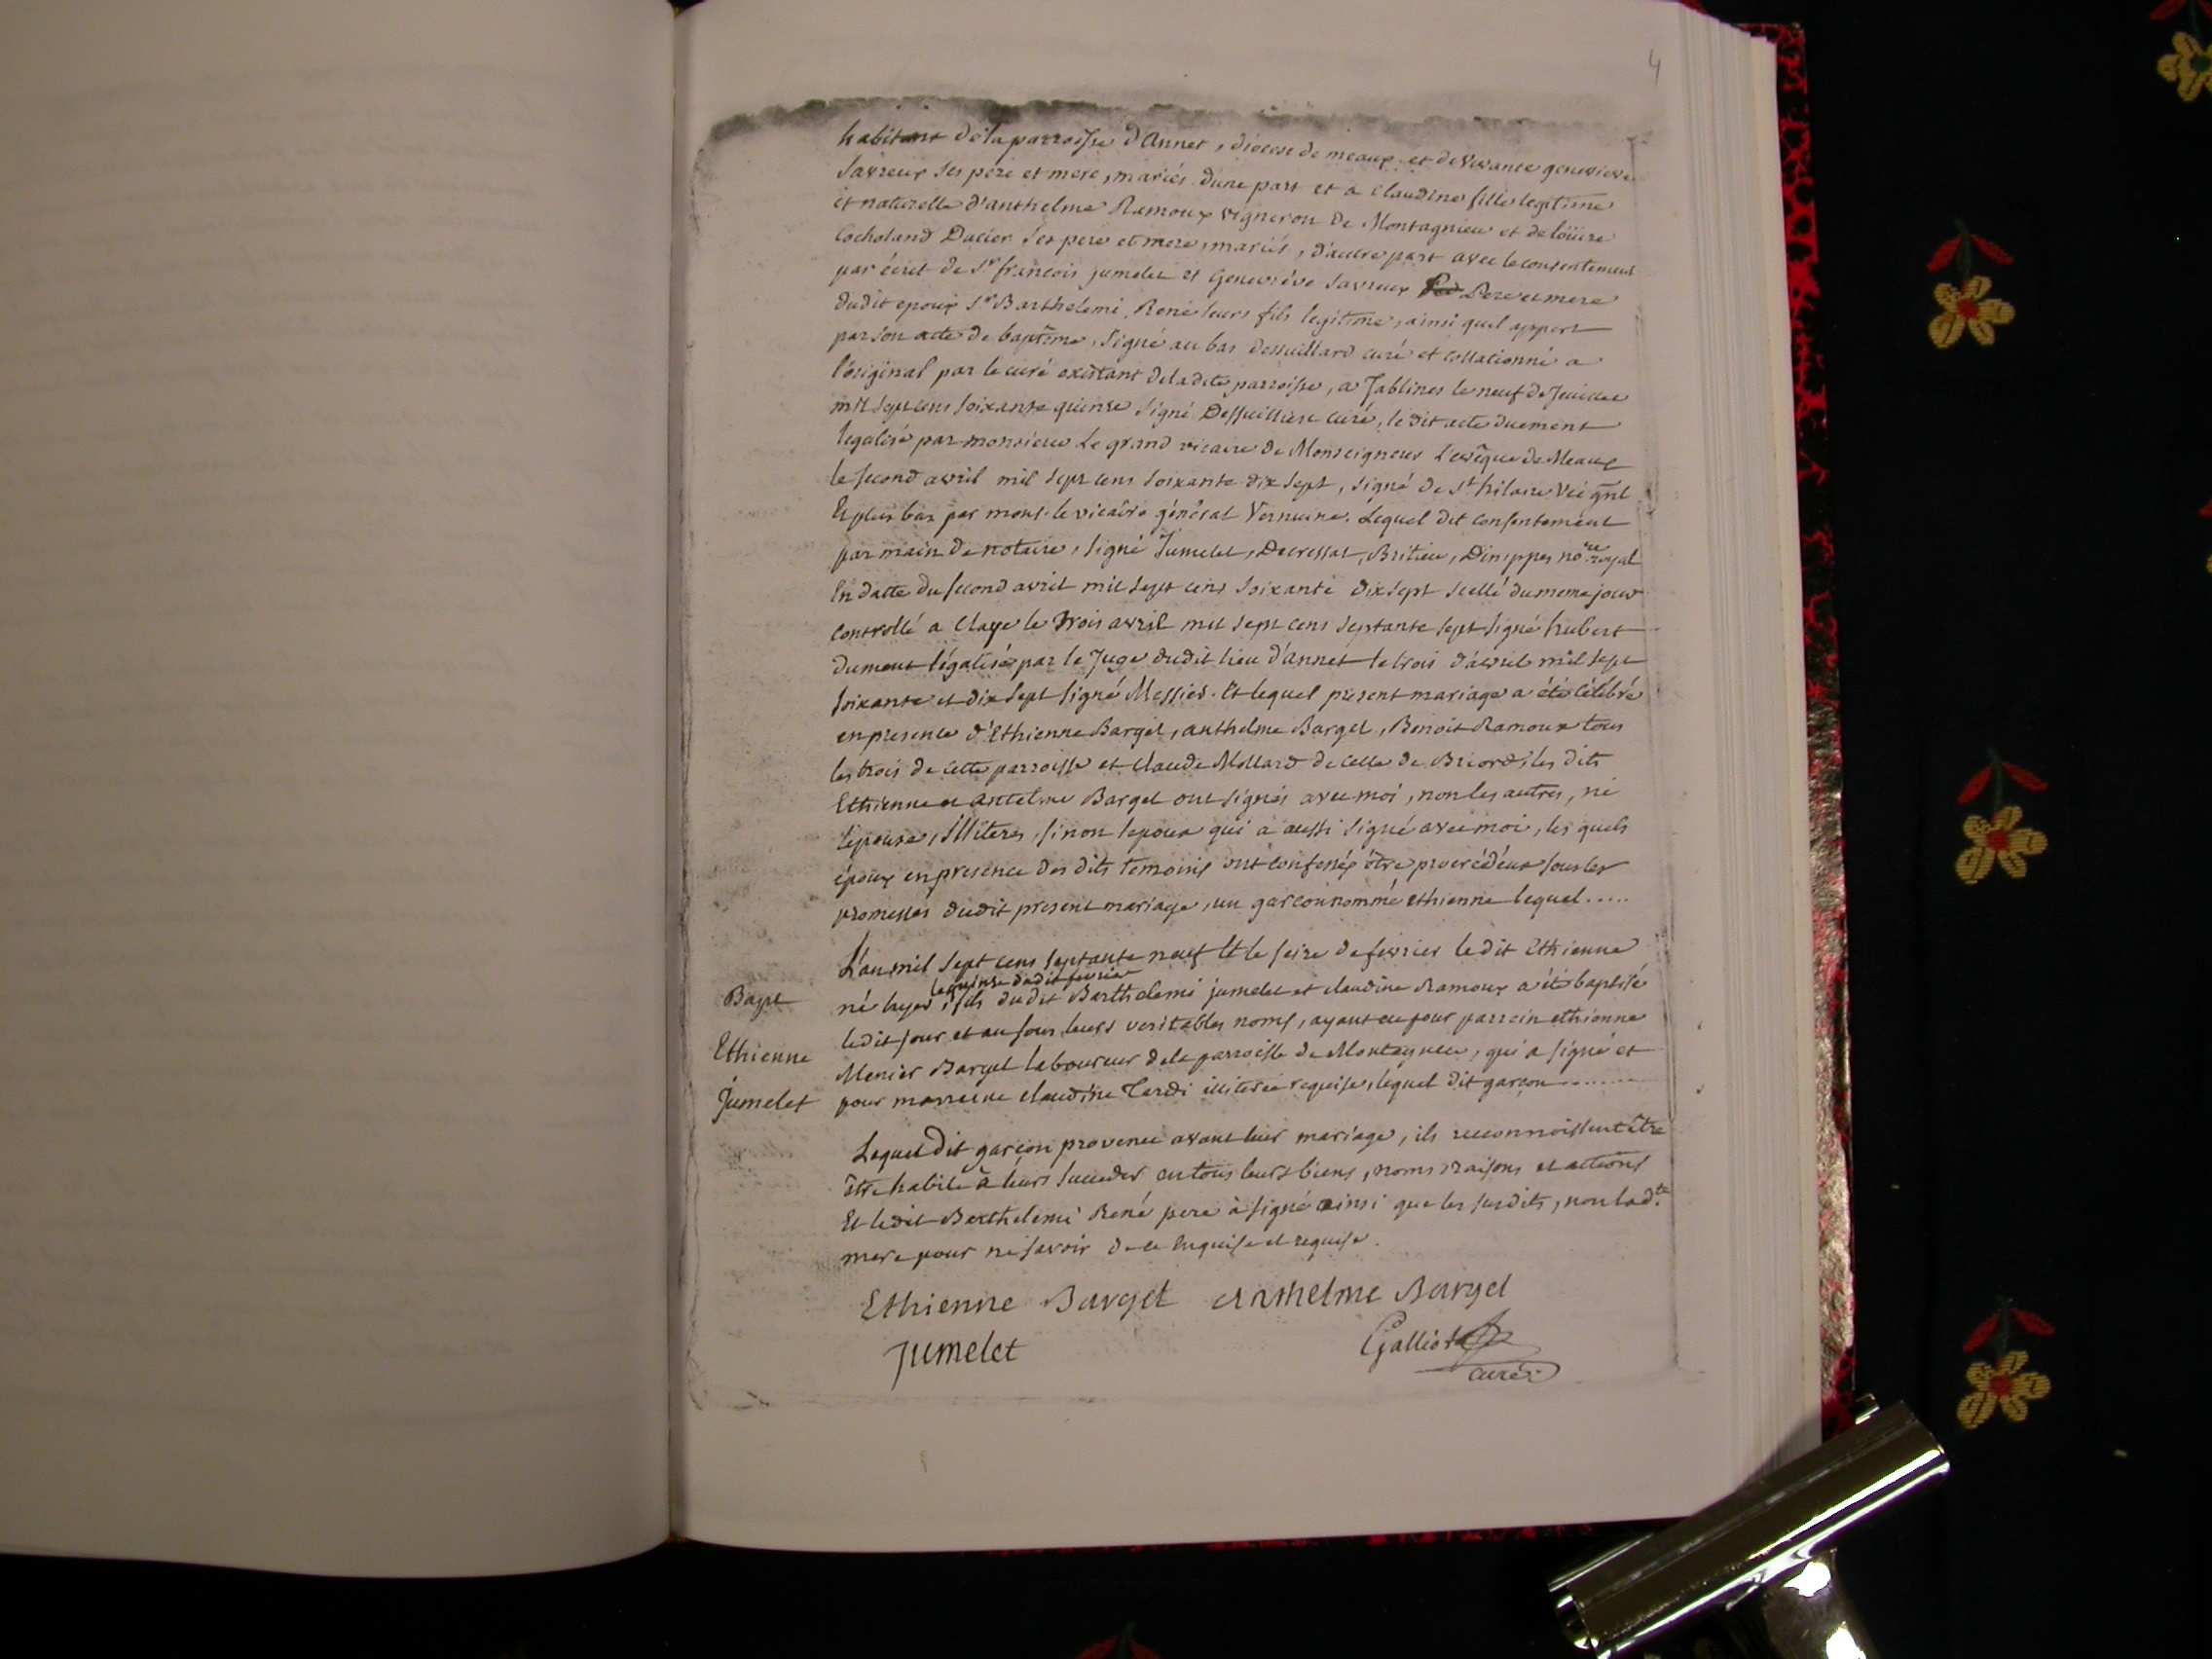 4
habitant de la parroisse d'Annet, diocese de meaux et de vivante genevieve
Savreux ses pere et mere, mariés d'une part et a Claudine fille legitime
et naturelle d'anthelme Ramoux vigneron de Montagnieu et de
Ducier ses pere et mere, mariés, d'autre part avec le consentement
par écrit de Sr francois jumelet et Genevieve Savreux Pere et mere
dudit epoux Sr Barthelemi René leurs fils legitime, ainsi quel appert
par son acte de baptême, signé au bas curé et collationné a
l'original par le curé existant de ladite parroisse, a Jablines le neuf de Juillet
mil sept cens soixante quinse signé curé, le dit acte duement
legalisé par monsieur Le grand vicaire de Monseigneur L'evêque de Meaux
le second avril mil sept cens soixante dix sept, signé de St hilaire vic gnl
Et plus bas par mons. le vicaire général . Lequel dit consentement
par main de notaire, signé Jumelet, Decressat, Britieu, nore royal
En datte du second avril mil sept cens soixante dix sept scellé du meme jour
Controllé a Claye le trois avril mil sept cens septante sept signé hubert
dument légalisé par le Juge dudit lieu d'annet le trois d'avril mil sept
soixante et dix sept signé Messier. Et lequel present mariage a été célébré
en presence d'Ethienne Bargel, anthelme Bargel, Benoit Ramoux tous
les trois de cette parroisse et Claude Mollard de celle de Briord, les dits
Ethienne et Antelme Bargel ont signés avec moi, non les autres, ni
l'epouse, Illiteres, sinon l'epoux qui a aussi signé avec moi, les quels
époux en presence des dits temoins ont confessés être sous les
promesses dudit present mariage, un garcon nommé ethienne lequel .....
L'an mil sept cens septante neuf et le seize de fevrier le dit Ethienne
le quinse dudit fevrier
Bapt né hyer, fils dudit Barthelemi jumelet et claudine Ramoux a été baptisé
ledit jour et an sous leurs veritables noms, ayant eu pour parrein ethienne
Ethienne Menier Bargel laboureur de la parroisse de Montagnieu, qui a signé et
Jumelet pour marreine claudine Tardi illiterée requise, lequel dit garcon .......
Lequel Dit garçon provenu avant leur mariage, ils reconnoissent être
être habile à leurs succeder en tous leurs biens, noms raisons et actions
Et ledit Barthelemi René pere à signé ainsi que les susdits, non ladte
mere pour ne savoir de ce enquise et requise.
Ethienne Bargel Anthelme Bargel
Jumelet Galliot
curé